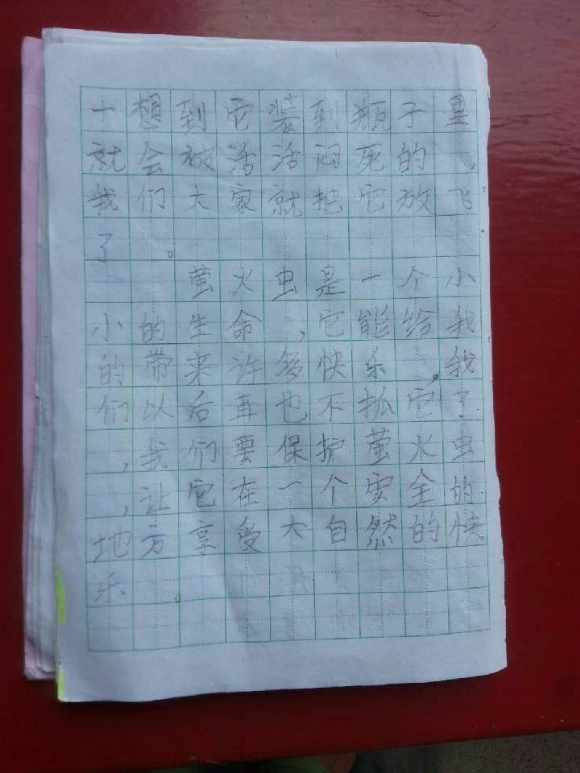 一想到它装到瓶子里
就会被活活闷死的，
我们大家就把它放飞
了。
萤火虫是一个小
小的生命，它能给我
的带来许多快乐，我
们以后再也不抓它了
，我们要保护萤火虫
，让它在一个安全的
地方享受大自然的快
乐。